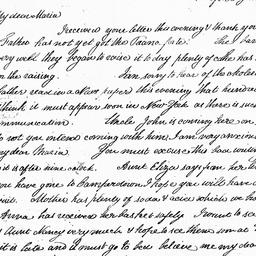 My dear Maria
Received your letter this evening & thank you
Father has not yet got the Piano forte. The
very well they began to raise it to day plenty of cake has
on the raising. I am sorry to hear of the
Father read in a New paper this evening that
think it must appear soon in New York as there is
communication. Uncle John is coming here on
to not you intend coming with him. I am very anxious
my dear Maria. You must excuse this bad writing
it is after nine oclock. Aunt Eliza says from her
you have gone to I hope you will have a
visit. Mother has plenty of sodas & acids which we
Anna has received her basket safely. I want to see
& Aunt Nancy very much & hope to see them soon at
it is late and I must go to bed believe me my dear